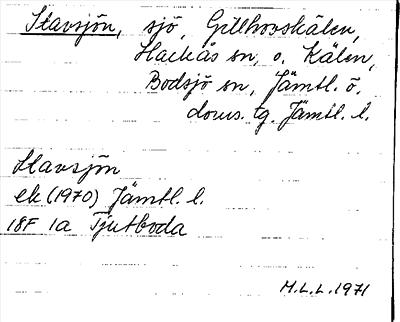 Stavsjön, sjö, Gillhovskälen,
Hackås sn, o. Kälen,
Bodsjö sn, Jämtl. ö.
doms. tg. Jämtl. l.
Stavsjön
ek (1970) Jämtl. l.
18F 1a Tjutboda
M.L.L. 1971